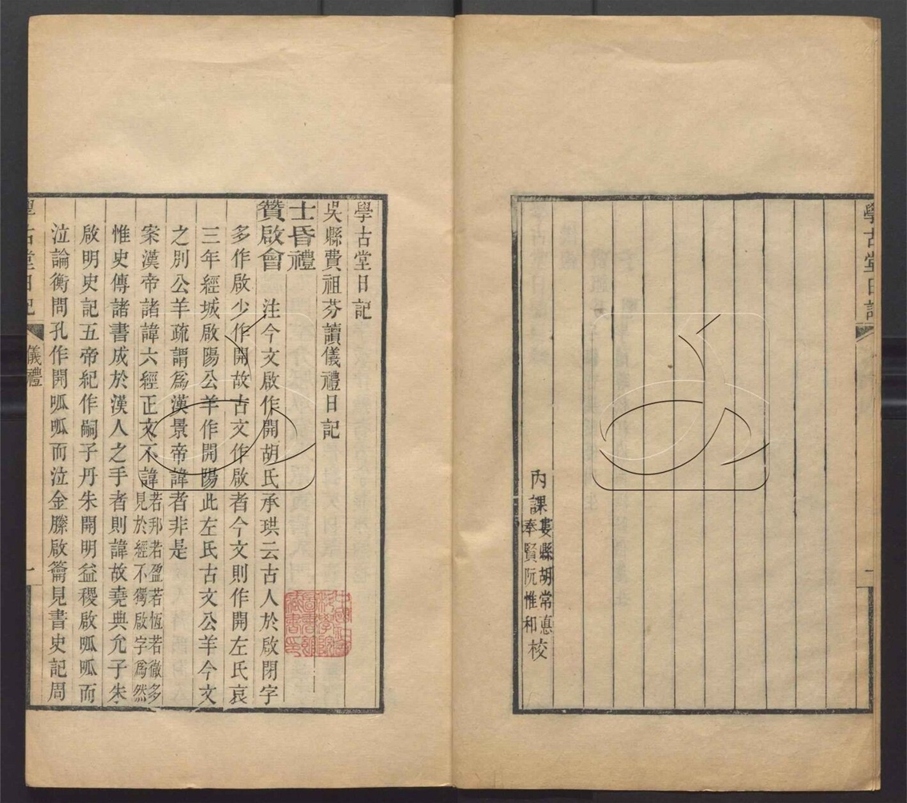 學古堂日記
內課婁縣胡常悳
奉賢阮惟和校
學古堂日記
吳縣費祖芬讀儀禮日記
士昏禮
贊啟會
注今文啟作開胡氏承珙云古人於啟閉字
多作啟少作開故古文作啟者今文則作開左氏哀
三年經城啟陽公羊作開陽此左氏古文公羊今文
之別公羊疏謂爲漢景帝諱者非是
案漢帝諸諱六經正文不諱若邦若盈若恆若徹多
見於經不獨啟字爲然
惟史傳諸書成於漢人之手者則諱故堯典允子朱
啟明史記五帝紀作嗣子丹朱開明益稷啟呱呱而
泣論衡問孔作開呱呱而泣金縢啟籥見書史記周
學古堂日記 儀禮 一